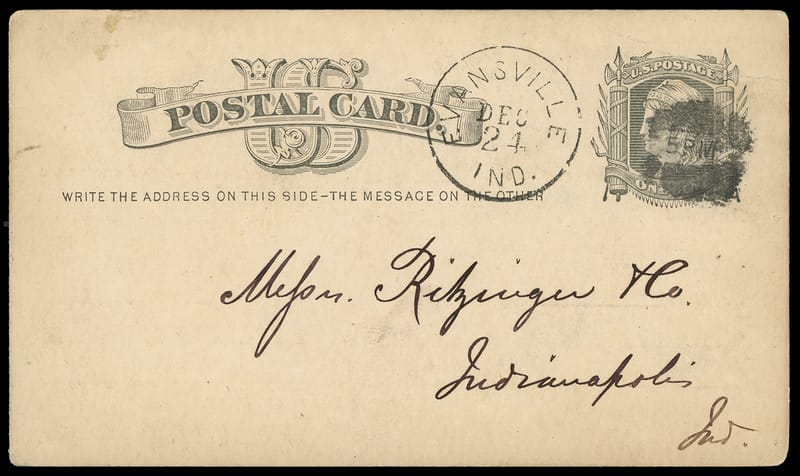 US
POSTAL CARD.
EVANSVILLE
DEC
24
IND.
U.S. POSTAGE
ONE
WRITE THE ADDRESS ON THIS SIDE-THE MESSAGE ON THE OTHER
Messrs. Ritzinger & Co.
Indianapolis
Ind.